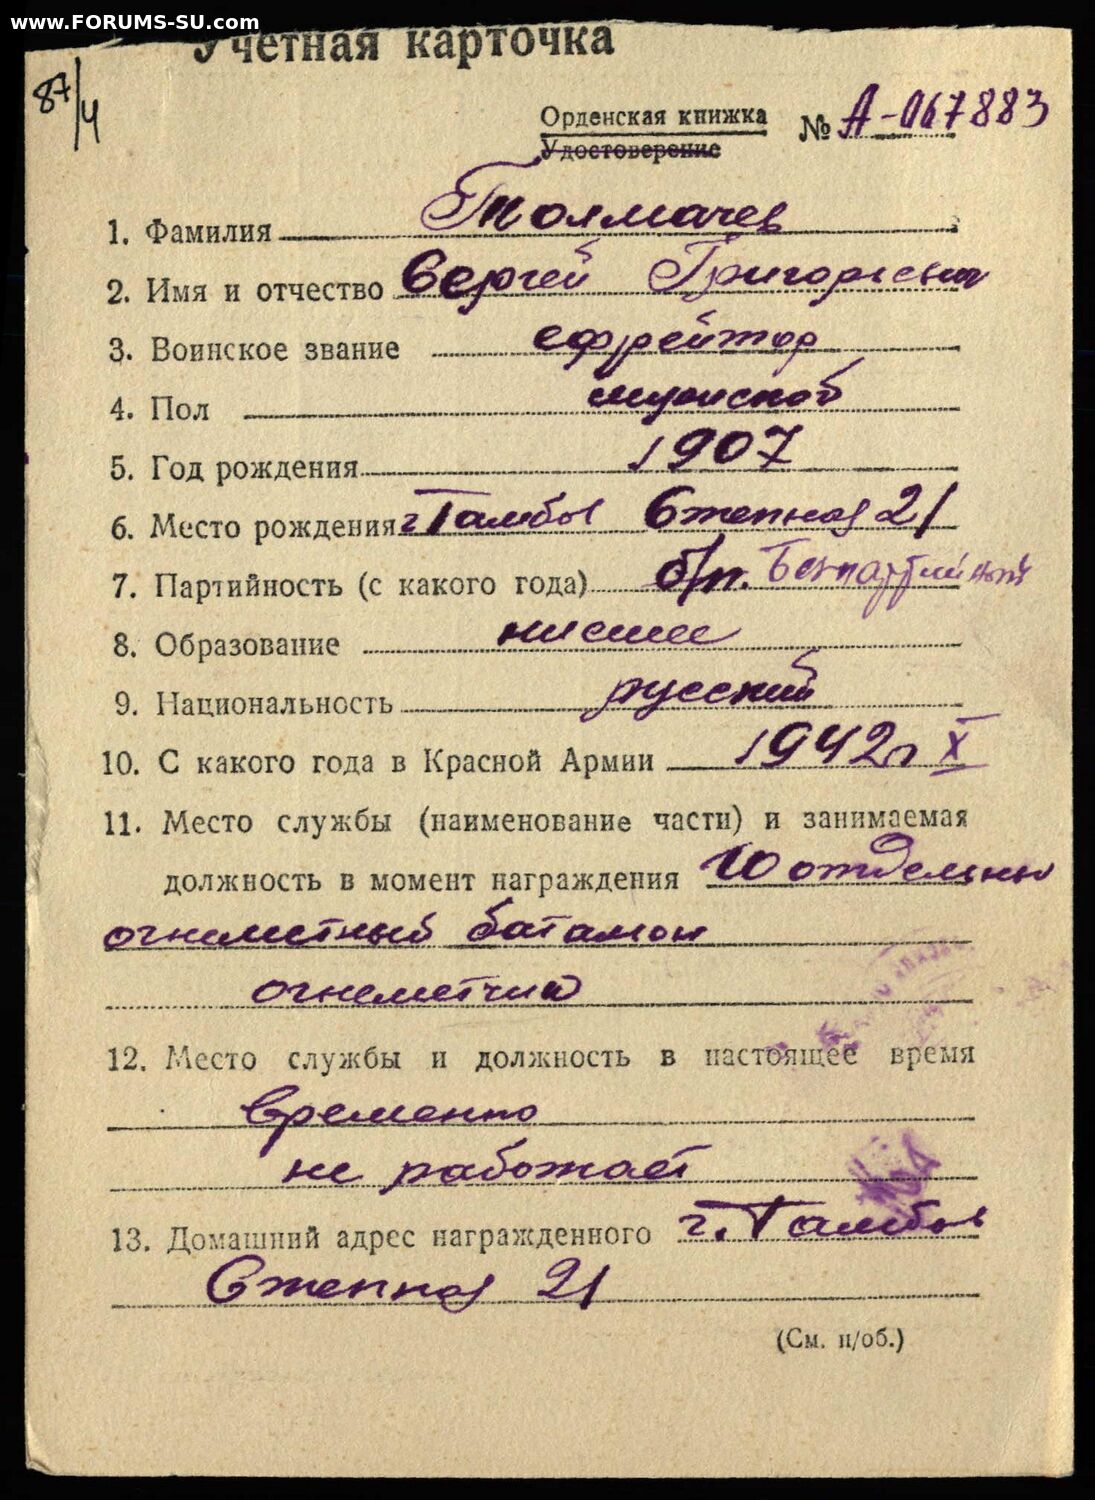 www.FORUMS-SU.com
Учетная карточка
87/4
Орденская книжка № А-067883
Удостоверение
1. Фамилия Толмачев
2. Имя и отчество Сергей Григорьевич
3. Воинское звание ефрейтор
4. Пол мужской
5. Год рождения 1907
6. Место рождения г Тамбов Степная 21
7. Партийность (с какого года) б/п. Беспартийный
8. Образование низшее
9. Национальность русский
10. С какого года в Красной Армии 1942 г X
11. Место службы (наименование части) и занимаемая
должность в момент награждения 10 отдельный
огнеметный батальон
огнеметчик
12. Место службы и должность в настоящее время
временно
не работает
13. Домашний адрес награжденного г. Тамбов
Степная 21
(См. н/об.)